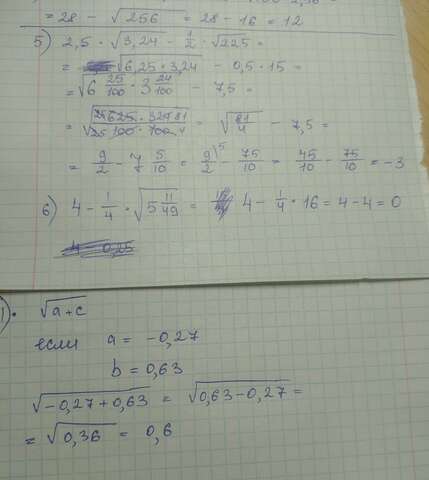 = 28 - √256 = 28 - 16 = 12
5) 2,5 · √3,24 - 1/2 · √225 =
= √6,25 · 3,24 - 0,5 · 15 =
= √6 25/100 · 3 24/100 - 7,5 =
= = √81/4 - 7,5 =
= 9/2 - 7 5/10 = 9/2 - 75/10 = 45/10 - 75/10 = -3
6) 4 - 1/4 · √5 11/49 = 4 - 1/4 · 16 = 4 - 4 = 0
1) · √a+c
если a = -0,27
b = 0,63
√-0,27 + 0,63 = √0,63 - 0,27 =
= √0,36 = 0,6